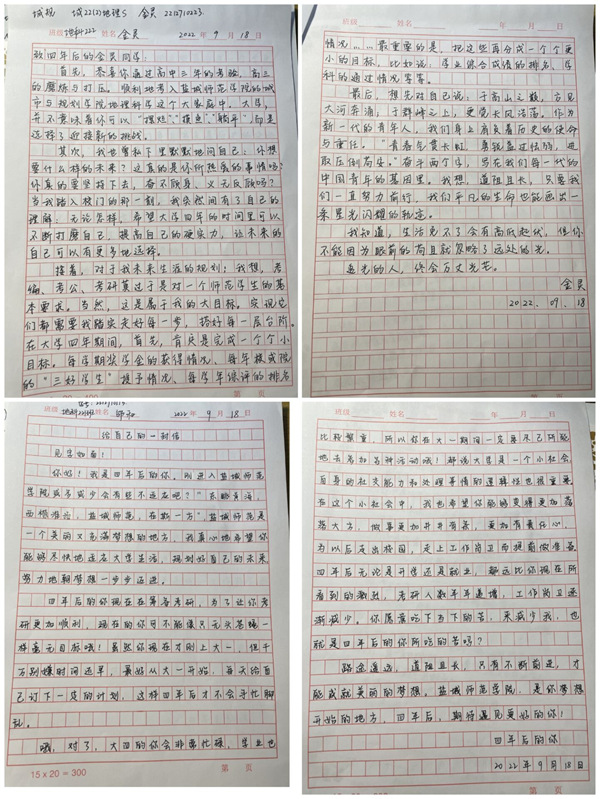 城规 城22(2)地理S 金灵 2212710223
班级 地科222 姓名 金灵 2022 年 9 月 18 日
致四年后的金灵同学:
首先,恭喜你通过高中三年的考验,高三
的磨练与打压。顺利地考入盐城师范学院的城
市与规划学院地理科学这个大家庭中。大学,
并不意味着你可以“摆烂”、“摸鱼”、“躺平”,而是
选择了迎接新的挑战。
其次,我也曾私下里默默地问自己:你想
要什么样的未来?这真的是你所热爱的事情吗?
你真的要坚持下去,奋不顾身,义无反顾吗?
当我踏入校门的那一刻,我突然间有了自己的
理解:无论怎样,希望大学四年的时间里可以
不断打磨自己,提高自己的硬实力,让未来的
自己可以有更多地选择。
接着,对于我未来生涯的规划:我想,考
编、考公、考研莫过于是对一个师范学生的基
本要求。当然,这是属于我的大目标。实现它
们都需要我踏实走好每一步,搭好每一层台阶。
在大学四年期间,首先,肯定是完成一个个小
目标。每学期奖学金的获得情况、每年校或院
的“三好学生”授予情况、每学年综评的排名
班级 姓名 年 月 日
情况……最重要的是,把这些再分成一个个更
小的目标,比如说,学业综合成绩的排名、学
科的通过情况等等。
最后,想先对自己说:于高山之巅,方见
大河奔涌;于群峰之上,更觉长风浩荡。作为
新一代的青年人,我们身上肩负着历史的使命
与重任。“青春虽莫长虹,勇锐盖过怯弱,进
取压倒苟安。”奋斗两个字,写在我们每一代的
中国青年的基因里。我想,道阻且长,只要我
们一直努力前行,我们平凡的生命也能画出一
条星光闪耀的轨迹。
我知道,生活免不了会有高低起伏,但你
不能因为眼前的苟且就忽略了远处的光。
追光的人,终会万丈光芒。
金灵
2022.09.18
班级 地科22(2)班 姓名 2022 年 9 月 18 日
给自己的一封信
见字如面!
你好!我是四年后的你。刚进入盐城师范
学院或多或少会有些不适应吧?“东临黄海,
西襟淮泗,盐城师范,在斯一方”,盐城师范是
一个美丽又充满梦想的地方,我真心地希望你
能够尽快地适应大学生活,规划好自己的未来
努力地朝梦想一步步迈进。
四年后的你现在在筹备考研,为了让你考
研更加顺利,现在的你可不能像只无头苍蝇一
样毫无目标哦!虽然你现在才刚上大一,但千
万别嫌时间还早,最好从大一开始,每天给自
己订下一定的计划,这样四年后才不会手忙脚
乱。
哦,对了,大四的你会非常忙碌,学业也
15×20=300 第 页
班级 姓名 年 月 日
比较繁重,所以你在大一期间一定要尽己所能
地去参加各种活动哦!都说大学是一个小社会
自身的社交能力和处理事情的逻辑性也很重要
在这个小社会中,我也希望你能够变得更加落
落大方,做事更加井井有条,更加有责任心,
为以后走出校园,走上工作岗位而提前做准备
四年后无论是升学还是就业,都远比你现在所
看到的激烈,考研人数年年递增,工作岗位逐
渐减少。你愿意吃下当下的苦,来减少我,也
就是四年后的你所吃的苦吗?
路途遥远,道阻且长,只有不断前进,才
能成就美丽的梦想。盐城师范学院,是你梦想
开始的地方,四年后,期待遇见更好的你!
四年后的你
2022年9月18日